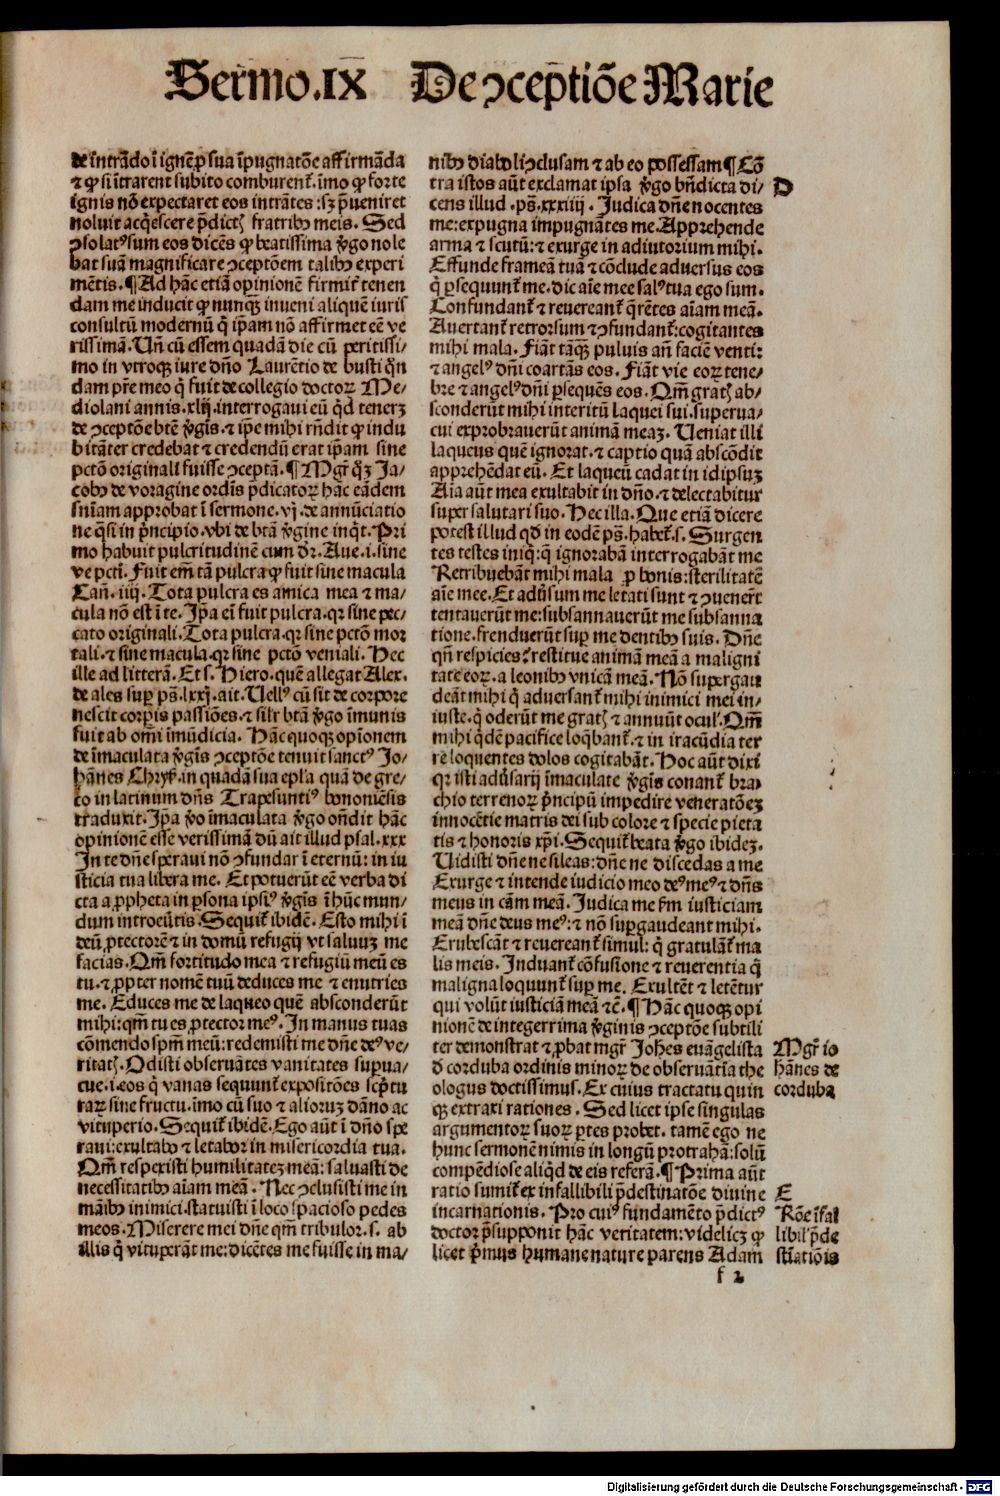 Sermo.IX De ↄceptiōe Marie
de ītrādo ī ignē ꝓ sua īpugnatōe affirmāda
⁊ ꝙ si ītrarent subito comburent̄. īmo ꝙ forte
ignis nō expectaret eos intrātes: sꝫ p̄ueniret
noluit acq̄escere p̄dict̄ fratribꝰ meis. Sed
ↄsolatꝰ sum eos dicēs ꝙ beatissima v̄go nole
bat suā magnificare ↄceptōem talibꝰ experi
mētis. ¶ Ad hāc etiā opinionē firmit̄ tenen
dam me inducit ꝙ nunqꝫ inueni aliquē iuris
consultū modernū q̄ ip̄am nō affirmet eē ve
rissimā. Un̄ cū essem quadā die cū peritissi/
mo in vtroqꝫ iure dn̄o Laurētio de busti q̄n
dam pr̄e meo q̄ fuit de collegio doctoꝝ Me/
diolani annis. xlij. interrogaui eū q̄d tenerꝫ
de ↄceptōe btē v̄gis. ⁊ ip̄e mihi rn̄dit ꝙ indu
bitāter credebat ⁊ credendū erat ip̄am sine
pctō originali fuisse ↄceptā. ¶ Mgr̄ qꝫ Ja/
cobꝰ de voragine ordīs p̄dicatoꝝ hāc eādem
snīam approbat ī sermone. vj. de annūciatio
ne q̄si in p̄ncipio. vbi de btā v̄gine inq̄t. Pri
mo habuit pulcritudinē cum dr̄. Aue. i. sine
ve pcti. Fuit em̄ tā pulcra ꝙ fuit sine macula
Can̄. iiij. Tota pulcra es amica mea ⁊ ma/
cula nō est ī te. Ip̄a eī fuit pulcra. qꝛ sine pec/
cato originali. Tota pulcra. qꝛ sine pctō mor
tali. ⁊ sine macula. qꝛ sine pctō veniali. Hec
ille ad litterā. Et s. Hiero. quē allegat Alex.
de ales sup̄ ps̄. lxxj. ait. Uellꝰ cū sit de corpore
nescit corp̄is passiōes. ⁊ silr̄ btā v̄go īmunis
fuit ab om̄i īmūdicia. Hāc quoqꝫ opīonem
de īmaculata v̄gīs ↄceptōe tenuit sanctꝰ Jo/
hānes Chryẜ. in quadā sua ep̄la quā de gre/
co in latinum dn̄s Trapesuntiꝰ bononiēsis
traduxit. Ip̄a v̄o īmaculata v̄go on̄dit hāc
opinionē esse verissimā dū ait illud psal. xxx
In te dn̄e speraui nō ↄfundar ī eternū: in iu
sticia tua libera me. Et potuerūt eē verba di
cta a ꝓpheta in ꝑsona ipsiꝰ v̄gīs ī hūc mun/
dum introeūtis. Sequit̄ ibidē. Esto mihi ī
deū ꝓtectorē ⁊ in domū refugij vt saluuꝫ me
facias. Qm̄ fortitudo mea ⁊ refugiū meū es
tu. ⁊ ꝓpter nomē tuū deduces me ⁊ enutries
me. Educes me de laqueo quē absconderūt
mihi: qm̄ tu es ꝓtector meꝰ. In manus tuas
cōmendo spm̄ meū: redemisti me dn̄e deꝰ ve/
ritat̄. Odisti obseruātes vanitates supua/
cue. i. eos q̄ vanas sequunt̄ expositōes scptu
raꝝ sine fructu. īmo cū suo ⁊ alioruꝫ dāno ac
vituperio. Sequit̄ ibidē. Ego aūt ī dn̄o spe
raui: exultabo ⁊ letabor in misericordia tua.
Qm̄ respexisti humilitateꝫ meā: saluasti de
necessitatibꝰ aīam meā. Nec ↄclusisti me in
māibꝰ inimici. statuisti ī loco spacioso pedes
meos. Miserere mei dn̄e qm̄ tribulor. s. ab
illis q̄ vituperāt me: dicētes me fuisse in ma/
nibꝰ diaboli ↄclusam ⁊ ab eo possessam ¶ Cō
tra istos aūt exclamat ipsa v̄go bn̄dicta di/
cens illud. ps̄. xxxiiij. Judica dn̄e nocentes
me: expugna impugnātes me. Apprehende
arma ⁊ scutū: ⁊ exurge in adiutorium mihi.
Effunde frameā tuā ⁊ cōclude aduersus eos
q̄ ꝑsequunt̄ me. dic aīe mee salꝰ tua ego sum.
Confundant̄ ⁊ reuereant̄ q̄rētes aīam meā.
Auertant̄ retrorsum ⁊ ↄfundant̄: cogitantes
mihi mala. Fiāt tāqꝫ puluis an̄ faciē venti:
⁊ angelꝰ dn̄i coartās eos. Fiāt vie eoꝝ tene/
bre ⁊ angelꝰ dn̄i ꝑsequēs eos. Qm̄ grat̄ ab/
sconderūt mihi interitū laquei sui. superua/
cui exprobrauerūt animā meaꝫ. Ueniat illi
laqueus quē ignorat. ⁊ captio quā abscōdit
apprehēdat eū. Et laqueū cadat in idipsuꝫ
Aīa aūt mea exultabit in dn̄o. ⁊ delectabitur
super salutari suo. Hec illa. Que etiā dicere
potest illud qd̄ in eodē ps̄. habet̄. s. Surgen
tes testes iniq̄: q̄ ignorabā interrogabāt me
Retribuebāt mihi mala ꝓ bonis: sterilitatē
aīe mee. Et adūsum me letati sunt ⁊ ↄuenerūt
tentauerūt me: subsannauerūt me subsanna
tione. frenduerūt sup̄ me dentibꝰ suis. Dn̄e
qn̄ respicies: restitue animā meā a maligni
tate eoꝝ. a leonibꝰ vnicā meā. Nō supergau
deāt mihi q̄ aduersant̄ mihi inimici mei in/
iuste. q̄ oderūt me grat̄ ⁊ annuūt oculꝰ. Qm̄
mihi q̄dē pacifice loq̄bant̄. ⁊ in iracūdia ter
re loquentes dolos cogitabāt. Hoc aūt dixi
qꝛ isti adūsarij īmaculate v̄gīs conant̄ bra/
chio terrenoꝝ p̄ncipū impedire veneratōeꝫ
innocētie matris dei sub colore ⁊ specie pieta
tis ⁊ honoris xp̄i. Sequit̄ beata v̄go ibideꝫ.
Uidisti dn̄e ne sileas: dn̄e ne discedas a me
Exurge ⁊ intende iudicio meo deꝰ meꝰ ⁊ dn̄s
meus in cām meā. Judica me ẜm iusticiam
meā dn̄e deus meꝰ: ⁊ nō sup̄gaudeant mihi.
Erubescāt ⁊ reuereant̄ simul: q̄ gratulāt̄ ma
lis meis. Induant̄ cōfusione ⁊ reuerentia q̄
maligna loquunt̄ sup̄ me. Exultēt ⁊ letētur
qui volūt iusticiā meā ⁊c̄. ¶ Hāc quoqꝫ opi
nionē de integerrima v̄ginis ↄceptōe subtili
ter demonstrat ⁊ ꝓbat mgr̄ Johēs euāgelista
d̄ corduba ordinis minoꝝ de obseruātīa the
ologus doctissimus. Ex cuius tractatu quin
qꝫ extraxi rationes. Sed licet ipse singulas
argumentoꝝ suoꝝ ꝑtes probet. tamē ego ne
hunc sermonē nimis in longū protrahā: solū
compēdiose aliq̄d de eis referā. ¶ Prima aūt
ratio sumit̄ ex infallibili p̄destinatōe diuine
incarnationis. Pro cuiꝰ fundamēto p̄dictꝰ
doctor p̄supponit hāc veritatem: videlicꝫ ꝙ
licet p̄mus humane nature parens Adam
D
Mgr̄ io
hānes de
corduba
E
Rōe īfal
libilꝰ p̄de
stīatiōis
f 2
Digitalisierung gefördert durch die Deutsche Forschungsgemeinschaft - DFG